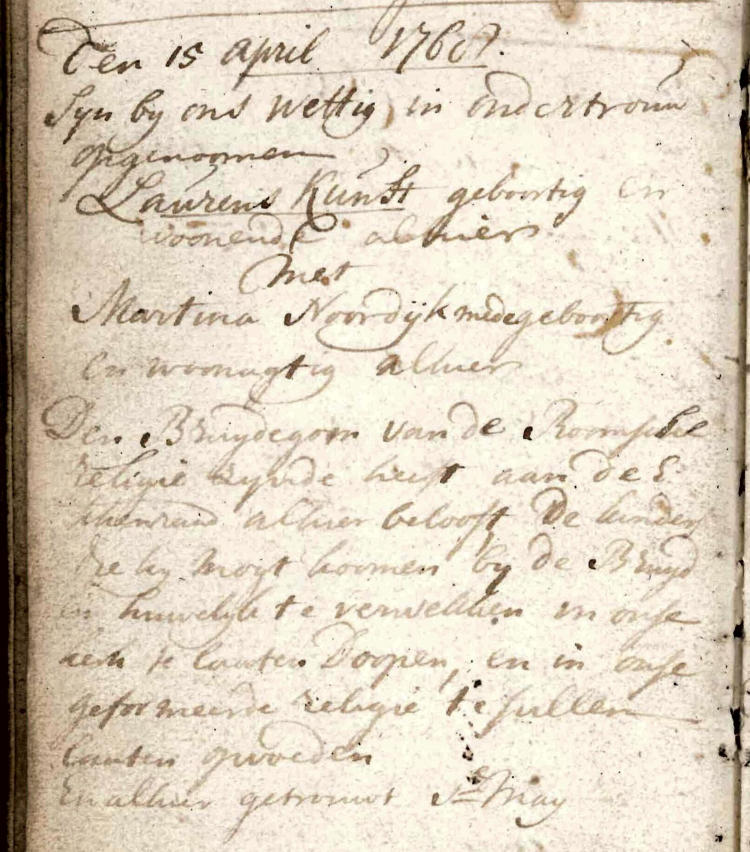 Den 15 april 1768.
Syn by ons wettig in ondertrouw
opgenoomen
Laurens Kunst geboortig en
woonende alhier
Met
Martina Noordijk medegeboortig
en woonagtig alhier
Den Bruydegom van de Roomsche
religie zynde heeft aan de E
kerkenraad alhier belooft De kinders
die hy mogt koomen by de Bruyd
in huwelyk te verwekken in onse
kerk te laaten Doopen, en in onse
gereformeerde religie te sullen
laaten opvoeden
En alhier getrouwt May